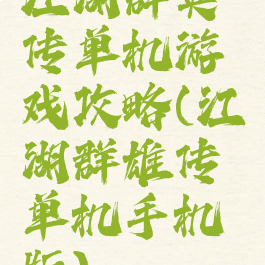 江湖群英
传单机游
戏攻略(江
湖群雄传
单机手机
版)